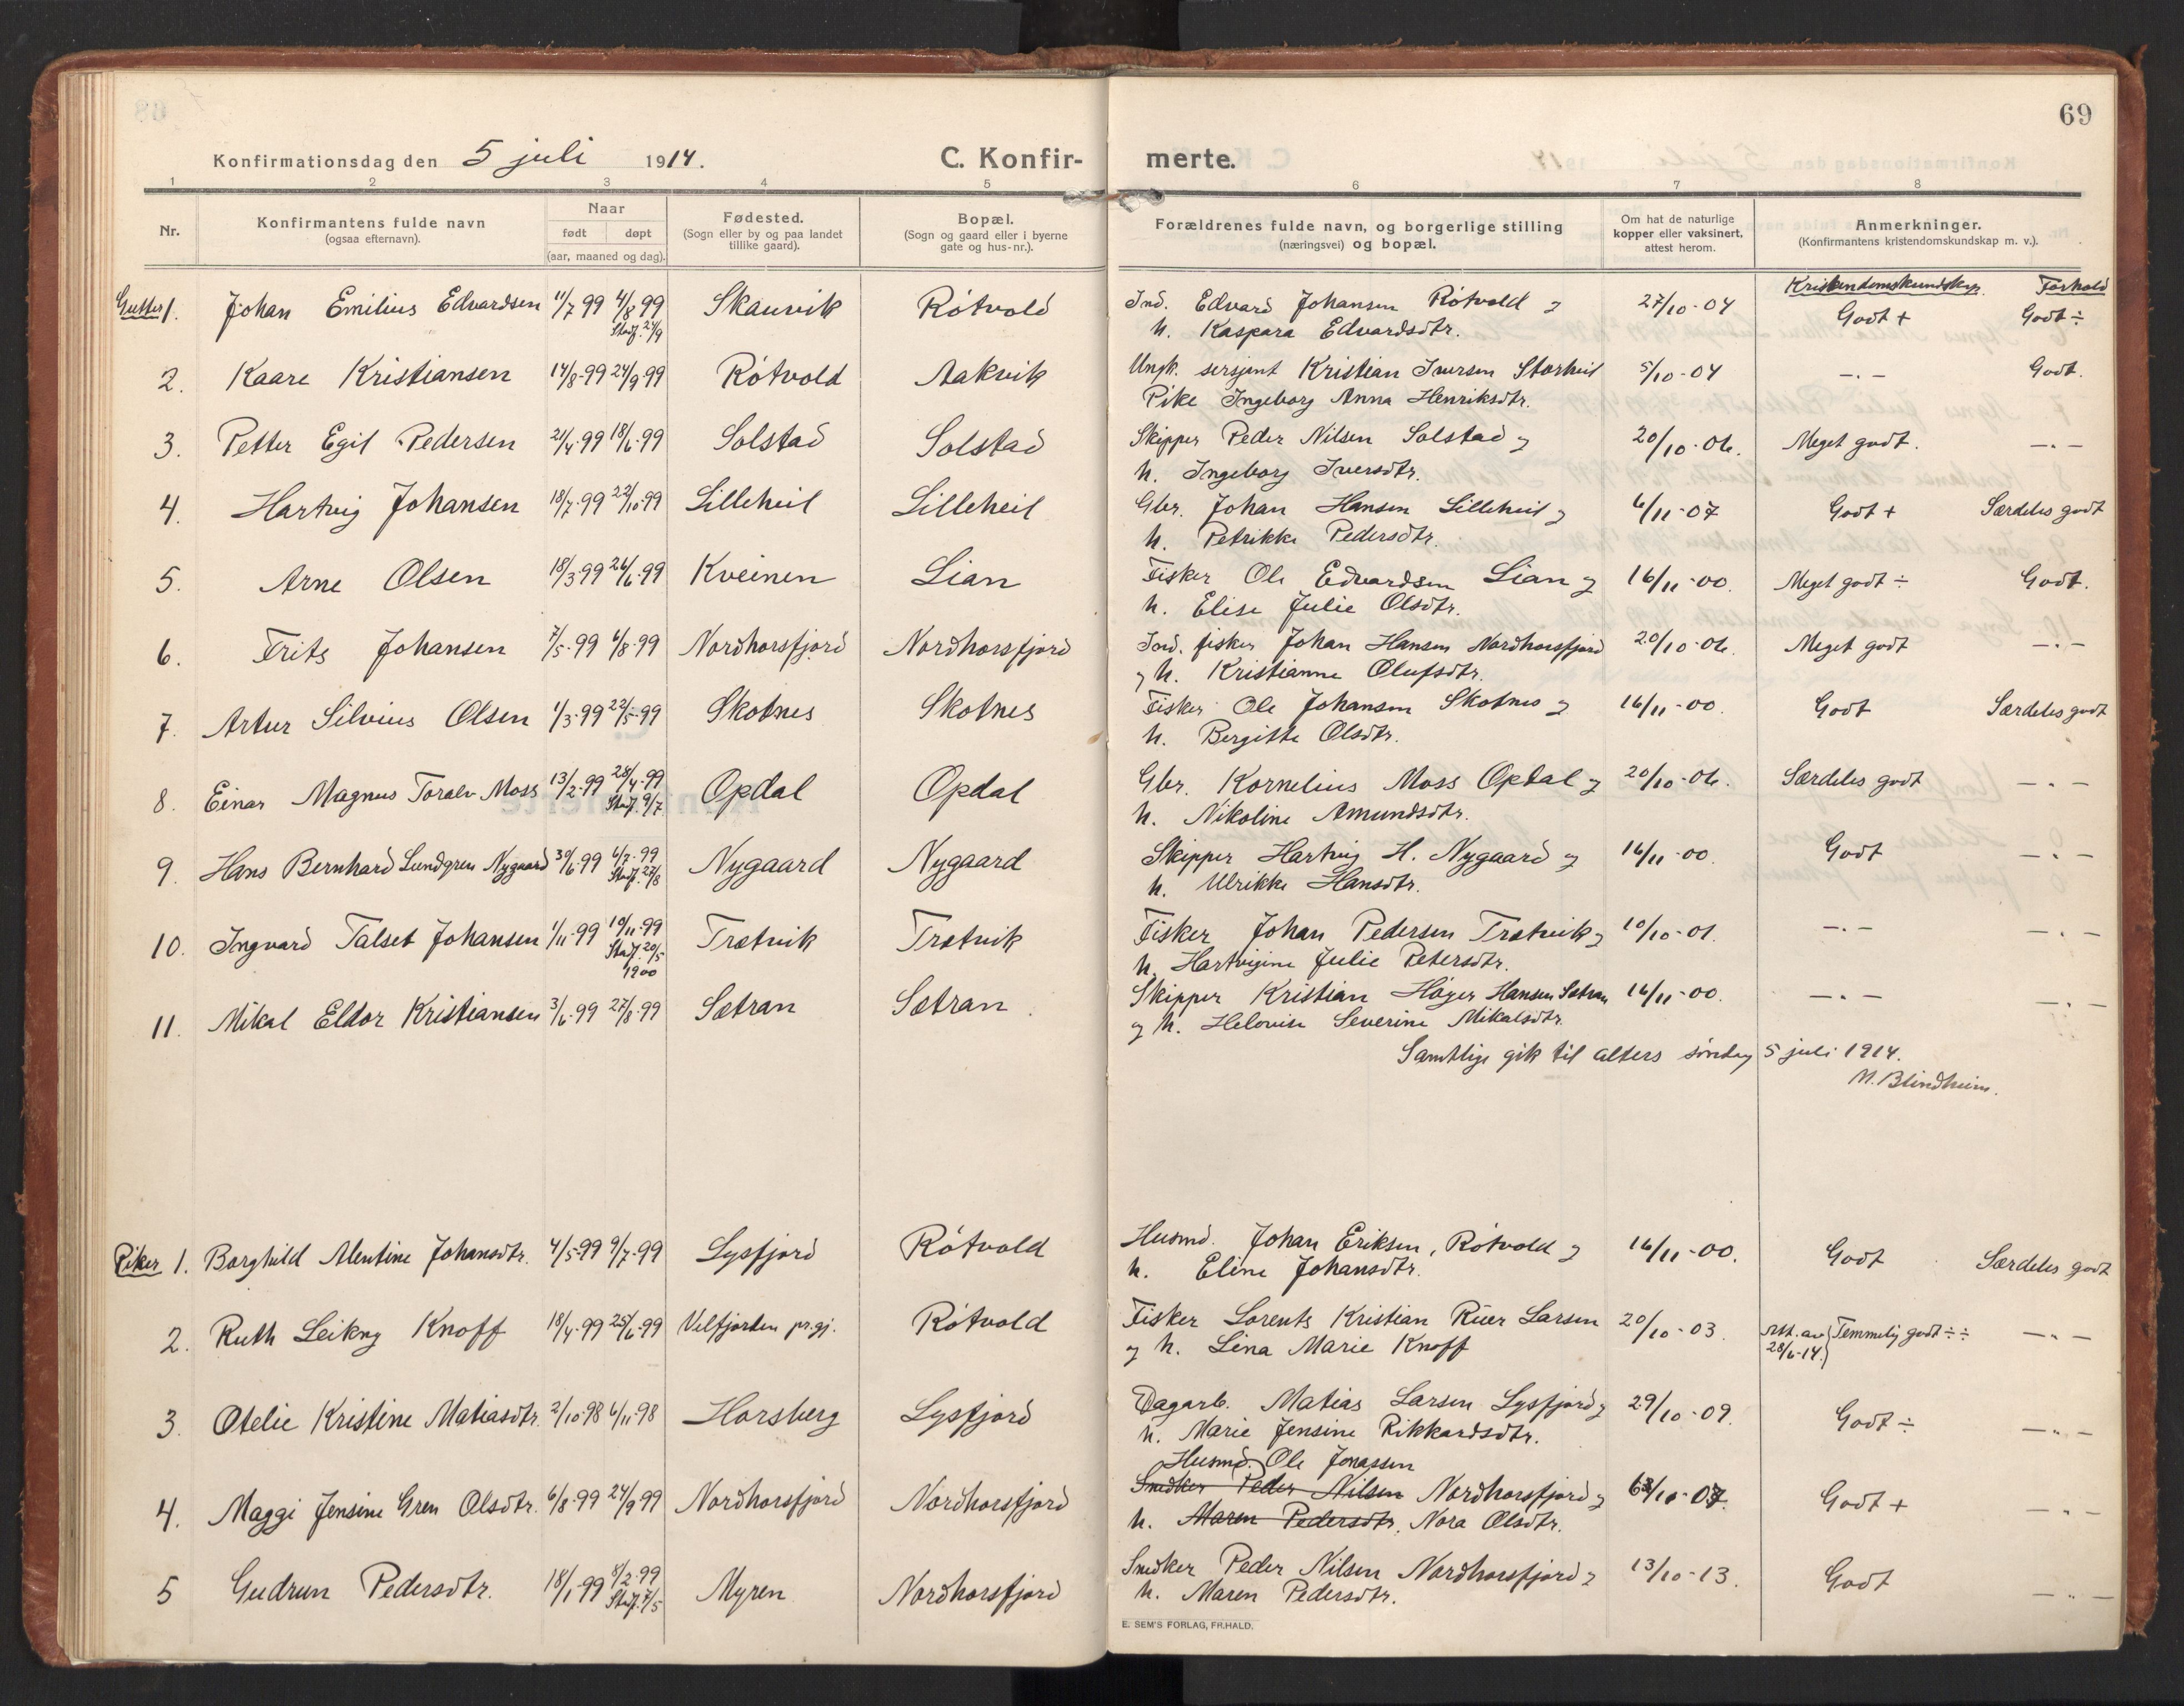 69
Konfirmationsdag den 5 juli 1914. C. Konfirmerte.
1 2 3 4 5 6 7 8
Nr. Konfirmantens fulde navn (ogsaa efternavn). Naar født døpt (aar, maaned og dag). Fødested. (Sogn eller by og paa landet tillike gaard). Bopæl. (Sogn og gaard eller i byerne gate og hus-nr.). Forældrenes fulde navn, og borgerlige stilling (næringsvei) og bopæl. Om hat de naturlige kopper eller vaksinert, attest herom. Anmerkninger. (Konfirmantens kristendomskundskap m. v.).
Kristendomskundskap. Forhold
Gutter 1. Johan Emilius Edvardsen 11/7 99 4/8 99 Skauvik Rótvold Ind. Edvard Johansen Rótvold og 27/10-04 Godt + Godt ÷
Stadf. 24/9 h. Kaspara Edvardsdtr.
2. Kaare Kristiansen 14/8-99 24/9-99 Rótvold Aakvik Ungk. sersjent Kristian Iversen Storheil 5/10-04 —.— Godt.
Pike Ingeborg Anna Henriksdtr.
3. Petter Egil Pedersen 21/4-99 18/6-99 Solstad Solstad Skipper Peder Nilsen Solstad og 20/10-06. Meget godt. —.—
h. Ingeborg Iversdtr.
4. Hartvig Johansen 18/7-99 22/10-99 Lilleheil Lilleheil Gbr. Johan Hansen Lilleheil og 6/11-07 Godt + Særdeles godt
h. Petrikke Pedersdtr.
5. Arne Olsen 18/3-99 26/6-99 Kveinen Lian Fisker Ole Edvardsen Lian og 16/11-00. Meget godt ÷ Godt.
h. Elise Julie Olsdtr.
6. Frits Johansen 7/5-99 6/8-99 Nordhorsfjord Nordhorsfjord Ind. fisker Johan Hansen Nordhorsfjord 20/10-06. Meget godt —.—
og h. Kristianne Olufsdtr.
7. Artur Silvius Olsen 1/3-99 22/5-99 Skotnes Skotnes Fisker Ole Johansen Skotnes og 16/11-00. Godt Særdeles godt
h. Bergitte Olsdtr.
8. Einar Magnus Toralv Moss 13/2-99 28/4-99 Opdal Opdal Gbr. Kornelius Moss Opdal og 20/10-06. Særdeles godt —.—
Stadf. 9/7 h. Nikoline Amundsdtr.
9. Hans Bernhard Lundgren Nygaard 30/6-99 6/7-99 Nygaard Nygaard Skipper Hartvig H. Nygaard og 16/11-00. Godt —.—
Stadf. 27/8 h. Ulrikke Hansdtr.
10. Ingvard Talset Johansen 1/11-99 10/11-99 Trætvik Trætvik Fisker Johan Pedersen Trætvik og 10/10-01. —.— —.—
Stadf. 20/5 1900 h. Hartvigine Julie Petersdtr.
11. Mikal Eldor Kristiansen 3/6-99 27/8-99 Sætran Sætran Skipper Kristian Høyer Hansen Sætran 16/11-00. —.— —.—
og h. Helovise Severine Mikalsdtr.
Samtlige gik til alters søndag 5 juli 1914.
M. Blindheim.
Piker 1. Borghild Alentine Johansdtr. 4/5-99 9/7-99 Lysfjord Rótvold Husmd. Johan Eriksen, Rótvold og 16/11-00. Godt Særdeles godt
h. Eline Johansdtr.
2. Ruth Leikny Knoff 18/4-99 25/6-99 Velfjorden pr.gj. Rótvold Fisker Lorents Kristian Rüer Larsen 20/10-03. Att. av 28/6-14. Temmelig godt ÷÷ —.—
og h. Lina Marie Knoff
3. Otelie Kristine Matiasdtr. 2/10-98 6/11-98 Horsberg Lysfjord Dagarb. Matias Larsen Lysfjord og 29/10-09. Godt ÷ —.—
h. Marie Jensine Rikkardsdtr.
Husmd. Ole Jonassen
4. Maggi Jensine Gren Olsdtr. 6/8-99 24/9 99 Nordhorsfjord Nordhorsfjord Snedker Peder Nilsen Nordhorsfjord og Godt + —.—
h. Maren Pedersdtr. Nora Olsdtr.
5 Gudrun Pedersdtr. 18/1-99 8/2-99 Myren Nordhorsfjord Snedker Peder Nilsen Nordhorsfjord og 13/10-13. Godt —.—
Stadf. 7/5 h. Maren Pedersdtr.
E. SEM'S FORLAG, FR.HALD.